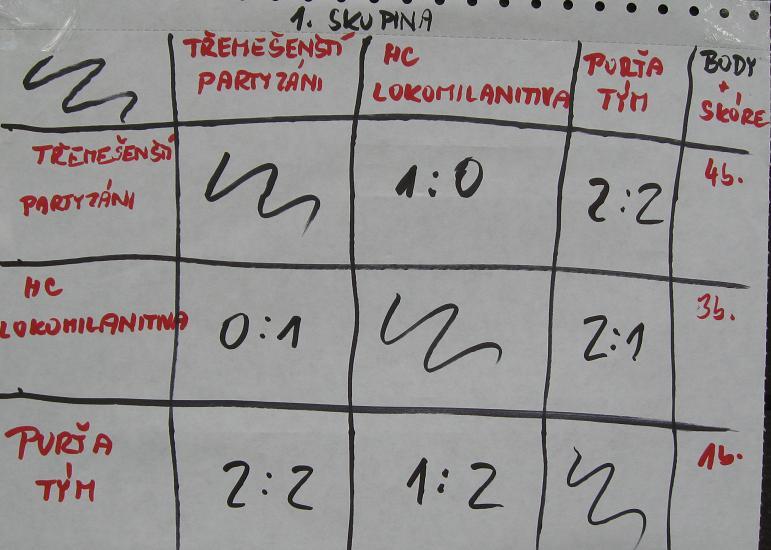 1. SKUPINA
TŘEMEŠENŠTÍ PARTYZÁNI
HC LOKOMILANITNA
PURŤA TÝM
BODY + SKÓRE
TŘEMEŠENŠTÍ PARTYZÁNI
1:0
2:2
4b.
HC LOKOMILANITNA
0:1
2:1
3b.
PURŤA TÝM
2:2
1:2
1b.